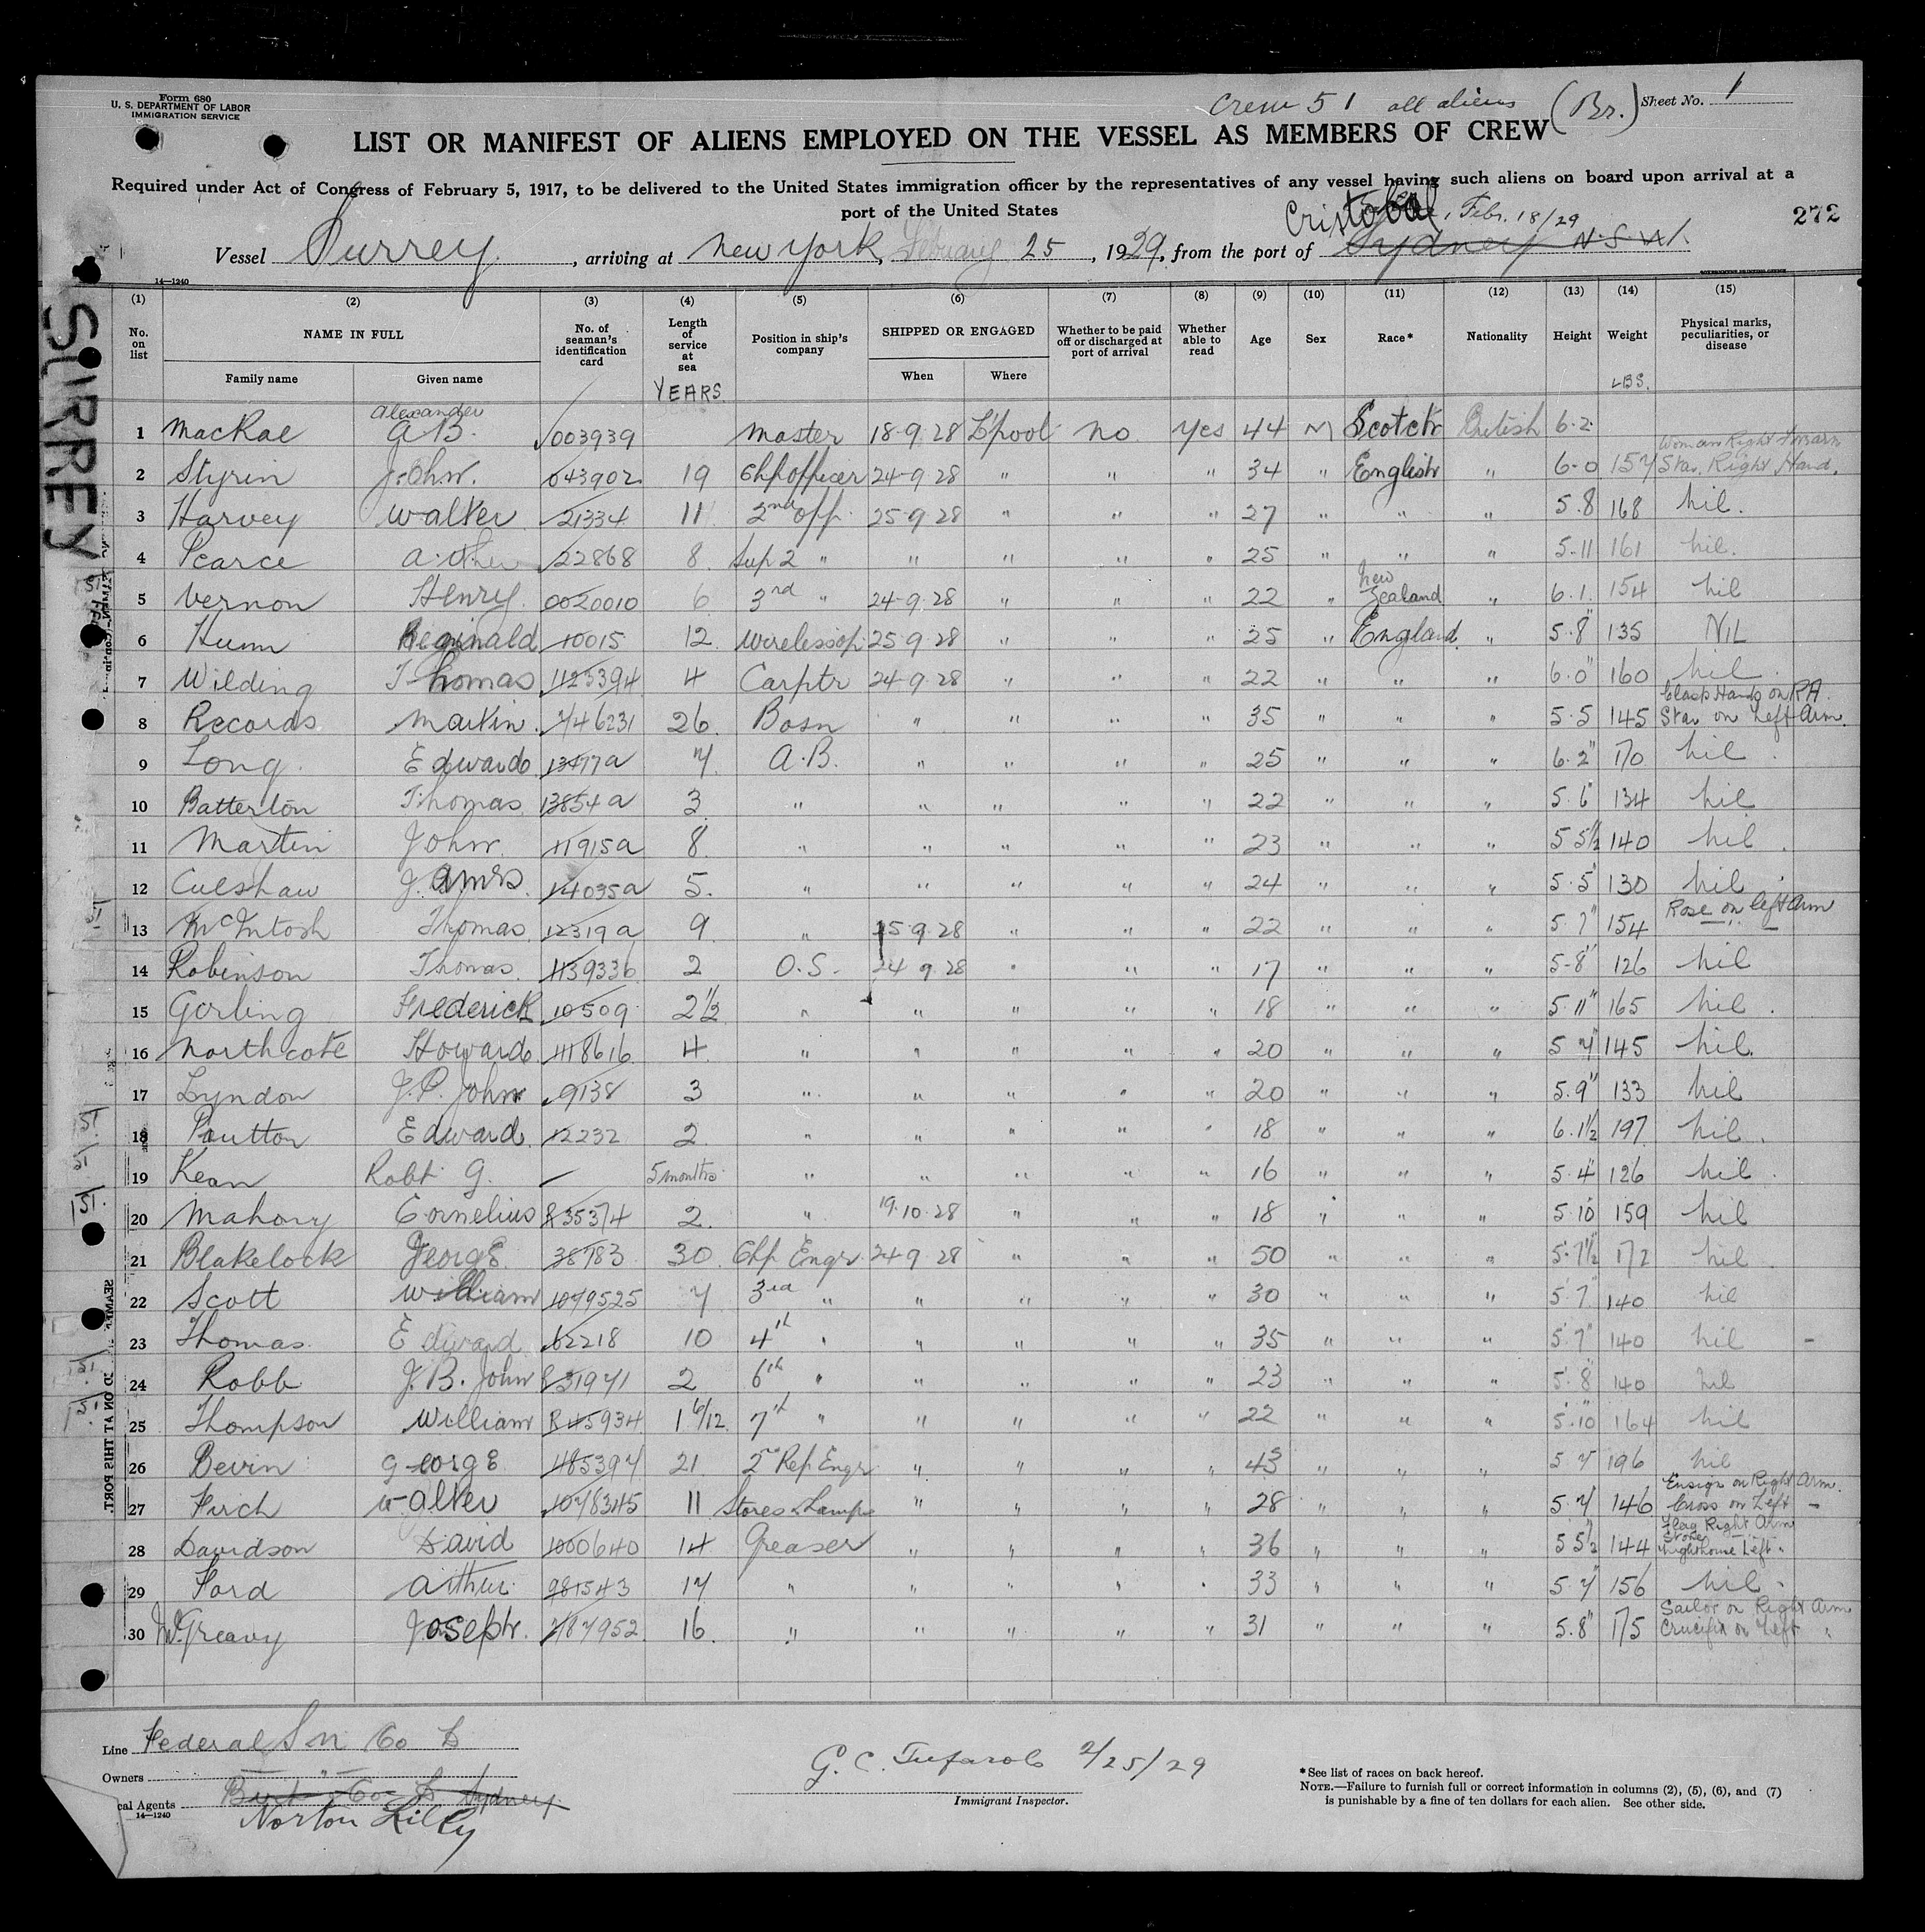 Form 680
U. S. DEPARTMENT OF LABOR
IMMIGRATION SERVICE
Crew 51 all aliens (Br.) Sheet No. 1
LIST OR MANIFEST OF ALIENS EMPLOYED ON THE VESSEL AS MEMBERS OF CREW
Required under Act of Congress of February 5, 1917, to be delivered to the United States immigration officer by the representatives of any vessel having such aliens on board upon arrival at a
port of the United States
Cristobal, Febr. 18/29
272
Vessel Surrey, arriving at New York, February 25, 1929, from the port of Sydney N.S.W.
14—1240
GOVERNMENT PRINTING OFFICE
SURREY
(1) (2) (3) (4) (5) (6) (7) (8) (9) (10) (11) (12) (13) (14) (15)
No. on list NAME IN FULL No. of seaman's identification card Length of service at sea Position in ship's company SHIPPED OR ENGAGED Whether to be paid off or discharged at port of arrival Whether able to read Age Sex Race* Nationality Height Weight Physical marks, peculiarities, or disease
Family name Given name YEARS When Where LBS.
1 MacRae Alexander A B. 003939 Master 18-9-28 L'pool no yes 44 M Scotch British 6-2
2 Styrin John 043902 19 Chf officer 24-9-28 " " " 34 " English " 6-0 157 Woman Right Forearm Star Right Hand.
3 Harvey Walter 21334 11 2nd off. 25-9-28 " " " 27 " " " 5.8 168 nil.
4 Pearce Arthur 22868 8 Sup 2 " " " " " 25 " " " 5-11 161 nil.
5 Vernon Henry 0020010 6 3rd " 24-9-28 " " " 22 " New Zealand " 6.1. 154 nil
6 Humm Reginald 10015 12 Wireless op 25-9-28 " " " 25 " England " 5.8" 135 NIL
7 Wilding Thomas 1125394 4 Carptr 24-9-28 " " " 22 " " " 6.0" 160 nil
8 Records Martin 746231 26 Bosn " " " " 35 " " " 5.5 145 Clasp Hands on RA. Star on Left Arm.
9 Long Edward 13477a 7 A.B. " " " " 25 " " " 6.2" 170 nil
10 Batterton Thomas 13854a 3 " " " " " 22 " " " 5.6" 134 nil
11 Martin John 11915a 8 " " " " " 23 " " " 5 5½ 140 nil
12 Culshaw James 14035a 5 " " " " " 24 " " " 5.5 130 nil
13 McIntosh Thomas 12319a 9 " 25.9.28 " " " 22 " " " 5.7" 154 Rose on left arm
14 Robinson Thomas 1139336 2 O.S. 24 9 28 " " " 17 " " " 5-8" 126 nil
15 Gorling Frederick 10509 2½ " " " " " 18 " " " 5.11" 165 nil
16 Northcote Howard 1118616 4 " " " " " 20 " " " 5 7" 145 nil.
17 Lyndon J.P. John 9138 3 " " " " " 20 " " " 5.9" 133 nil
18 Poutton Edward 12232 2 " " " " " 18 " " " 6.1½ 197 nil.
19 Kean Robt G. — 5 months " " " " " 16 " " " 5.4" 126 nil
20 Mahony Cornelius R 35374 2 " 19-10-28 " " " 18 " " " 5.10 159 nil
21 Blakelock George 38783 30 Chf Engr 24-9-28 " " " 50 " " " 5.7½ 172 nil
22 Scott William 1079525 7 3rd " " " " " 30 " " " 5 7" 140 nil
23 Thomas Edward 62218 10 4th " " " " " 35 " " " 5.7" 140 nil
24 Robb J. B. John R 31971 2 6th " " " " " 23 " " " 5.8" 140 nil
25 Thompson William R 45934 1 6/12 7th " " " " " 22 " " " 5.10" 164 nil
26 Bevin George 1185397 21 2nd Ref Engr " " " " 43 " " " 5.7 196 nil
27 Firch Walter 1078345 11 Stores & Lamps " " " " 28 " " " 5.7 146 Ensign on Right Arm. Cross on Left
28 Davidson David 1000640 14 Greaser " " " " 36 " " " 5 5½ 144 Flag Right Arm Stone Lighthouse Left "
29 Ford Arthur 981543 17 " " " " " 33 " " " 5.7" 156 nil
30 McGreavy Joseph 787952 16 " " " " " 31 " " " 5.8" 175 Sailor on Right Arm Crucifix on Left "
Line Federal S N Co L
Owners " "
cal Agents Birt Co L Sydney
Norton Lilly
14—1240
G. C. 2/25/29
Immigrant Inspector.
*See list of races on back hereof.
NOTE.—Failure to furnish full or correct information in columns (2), (5), (6), and (7)
is punishable by a fine of ten dollars for each alien. See other side.